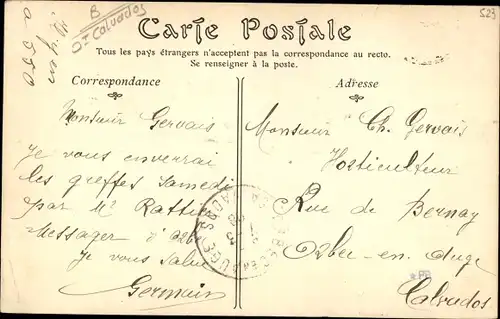 B
Dt Calvados
523
Carte Postale
Tous les pays étrangers n'acceptent pas la correspondance au recto.
Se renseigner à la poste.
Correspondance
Adresse
Monsieur Gervais
Je vous enverrai
les greffes Samedi
par Mr Rattier
Messager d'Orbec
Je vous salue
Germain
Monsieur Ch. Gervais
Horticulteur
Rue de Bernay
Orbec-en-Auge
Calvados